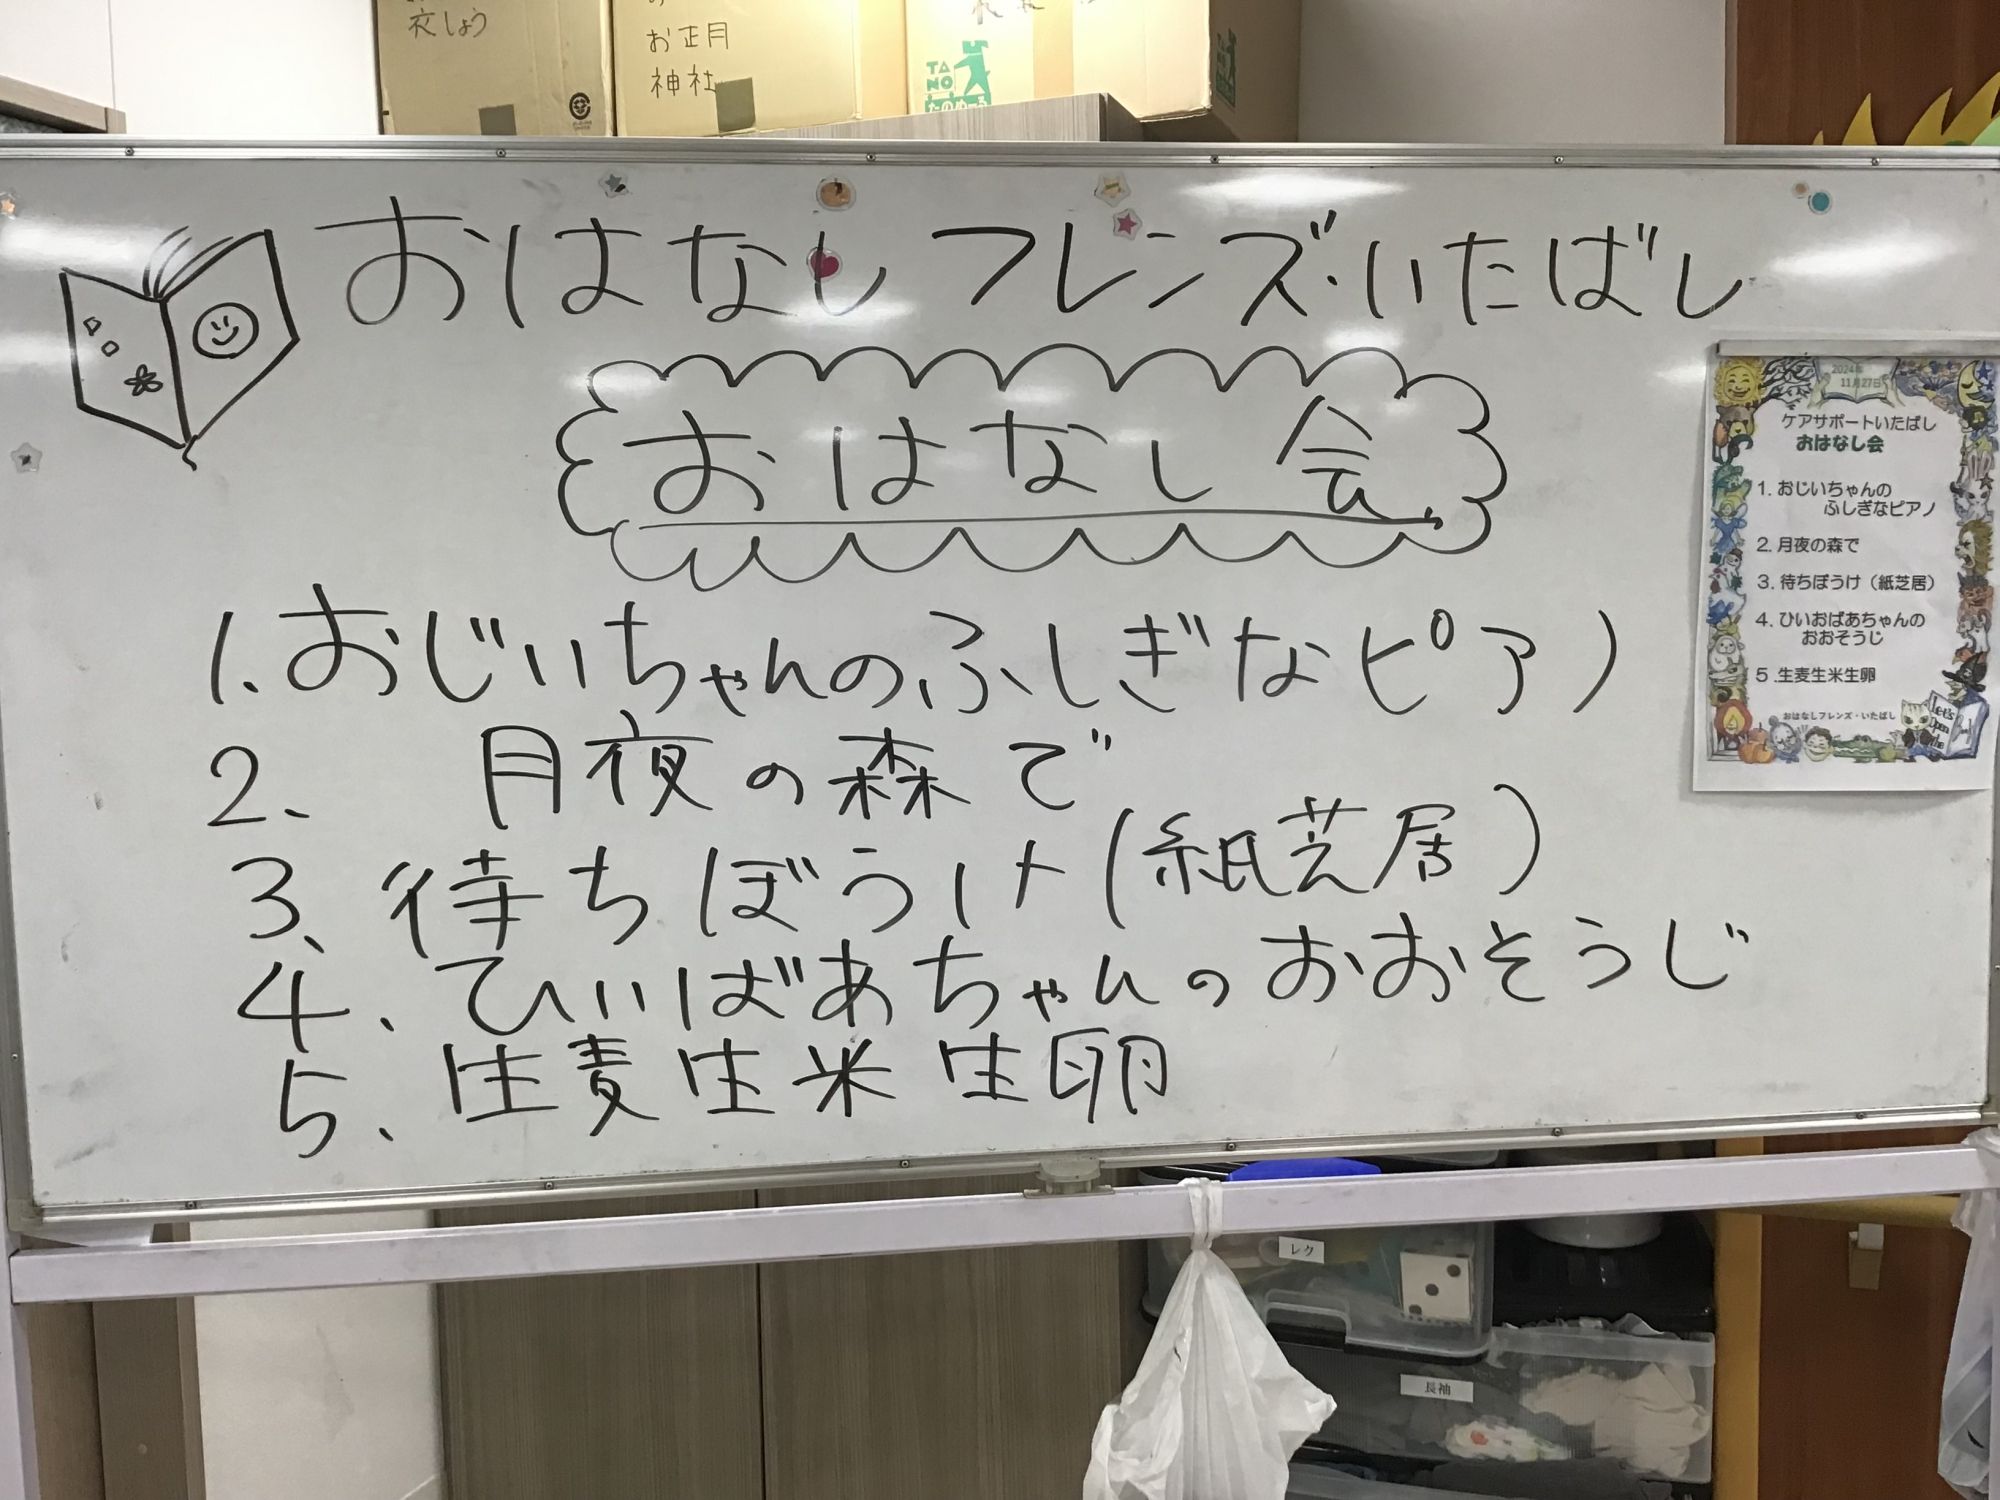 衣しょう
お正月
神社
TA
NO
たのめーる
おはなしフレンズ・いたばし
おはなし会
1.おじいちゃんのふしぎなピアノ
2、月夜の森で
3、待ちぼうけ(紙芝居)
4、ひいばあちゃんのおおそうじ
5、生麦生米生卵
2024年
11月27日
ケアサポートいたばし
おはなし会
1.おじいちゃんの
ふしぎなピアノ
2.月夜の森で
3.待ちぼうけ(紙芝居)
4.ひいおばあちゃんの
おおそうじ
5.生麦生米生卵
おはなしフレンズ・いたばし
Let's
Open
the
レク
長袖